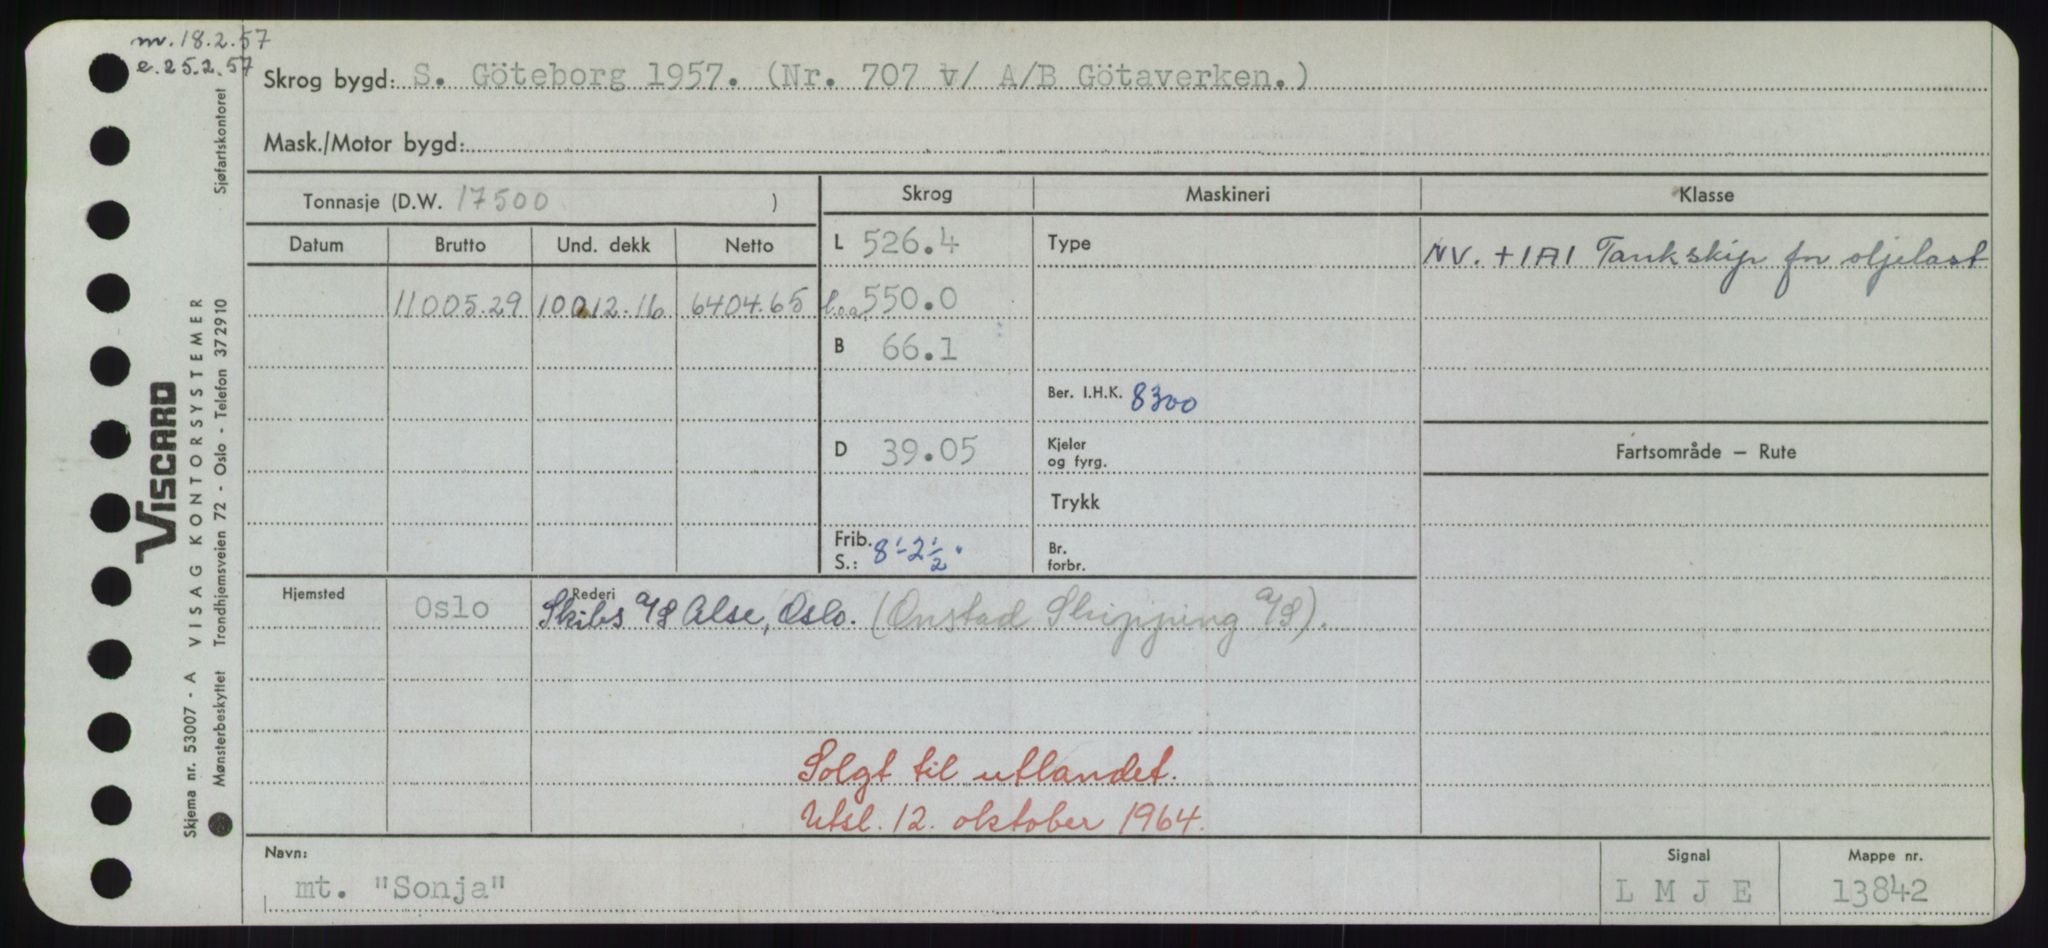 nv. 18.2.57
e. 25.2.57
Skrog bygd: S. Göteborg 1957. (Nr. 707 v/ A/B Götaverken.)
Mask./Motor bygd:
Tonnasje (D.W. 17500 )
Skrog Maskineri Klasse
Datum Brutto Und. dekk Netto
L 526.4 Type NV. + 1A1 Tankskip for oljelast
11005.29 10012.16 6404.65 l.o.a. 550.0
B 66.1
Ber. I.H.K. 8300
D 39.05 Kjeler og fyrg. Fartsområde — Rute
Trykk
Frib. S.: 8'-2½" Br. forbr.
Hjemsted Oslo Rederi Skibs A/S Alse, Oslo. (Onstad Shipping A/S).
Solgt til utlandet.
Utsl. 12. oktober 1964.
Navn: Signal Mappe nr.
mt. "Sonja" L M J E 13842
VISCARD
VISAG KONTORSYSTEMER
Skjema nr. 53007 - A
Mønsterbeskyttet Trondhjemsveien 72 - Oslo - Telefon 372910 Sjøfartskontoret